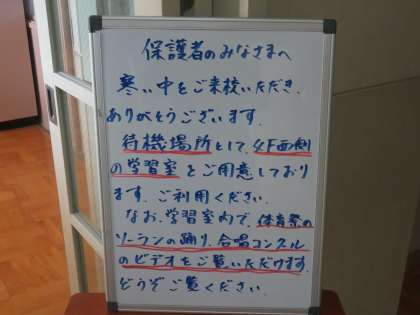 保護者のみなさまへ
寒い中をご来校いただき、
ありがとうございます。
待機場所として、4F西側
の学習室をご用意しており
ます。ご利用ください。
なお、学習室内で、体育祭の
ソーランの踊り、合唱コンクール
のビデオをご覧いただけます。
どうぞご覧ください。